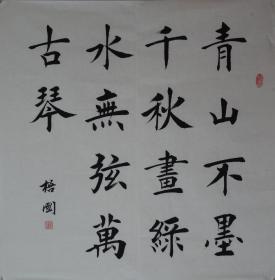 青山不墨
千秋畫綠
水無弦萬
古琴